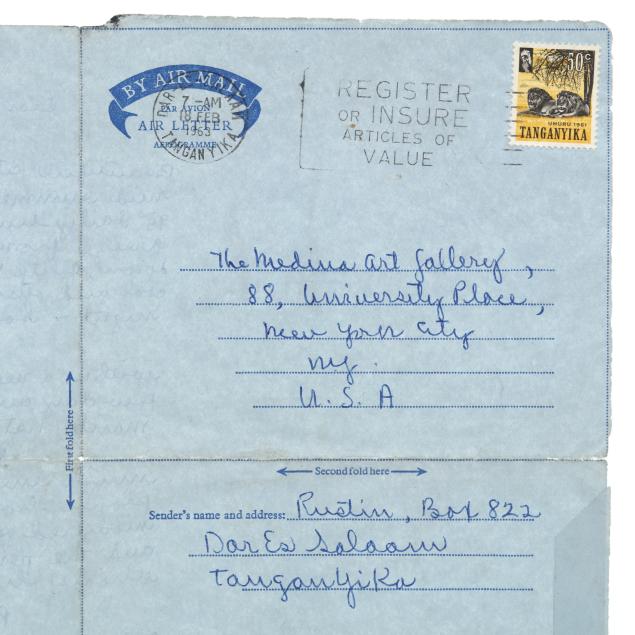 BY AIR MAIL
PAR AVION
AIR LETTER
AEROGRAMME
7-AM
18 FEB
1963
TANGANYIKA
REGISTER
OR INSURE
ARTICLES OF
VALUE
50c
UHURU 1961
TANGANYIKA
The Medina Art Gallery,
88, University Place,
New York City
NY.
U.S.A
First fold here
Second fold here
Sender's name and address: Rustin, Box 822
Dar Es Salaam
Tanganyika